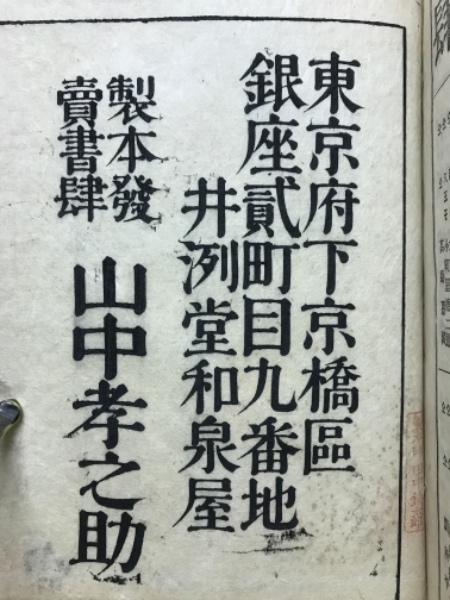 東京府下京橋區
銀座貳町目九番地
井洌堂和泉屋
製本發
賣書肆
山中孝之助